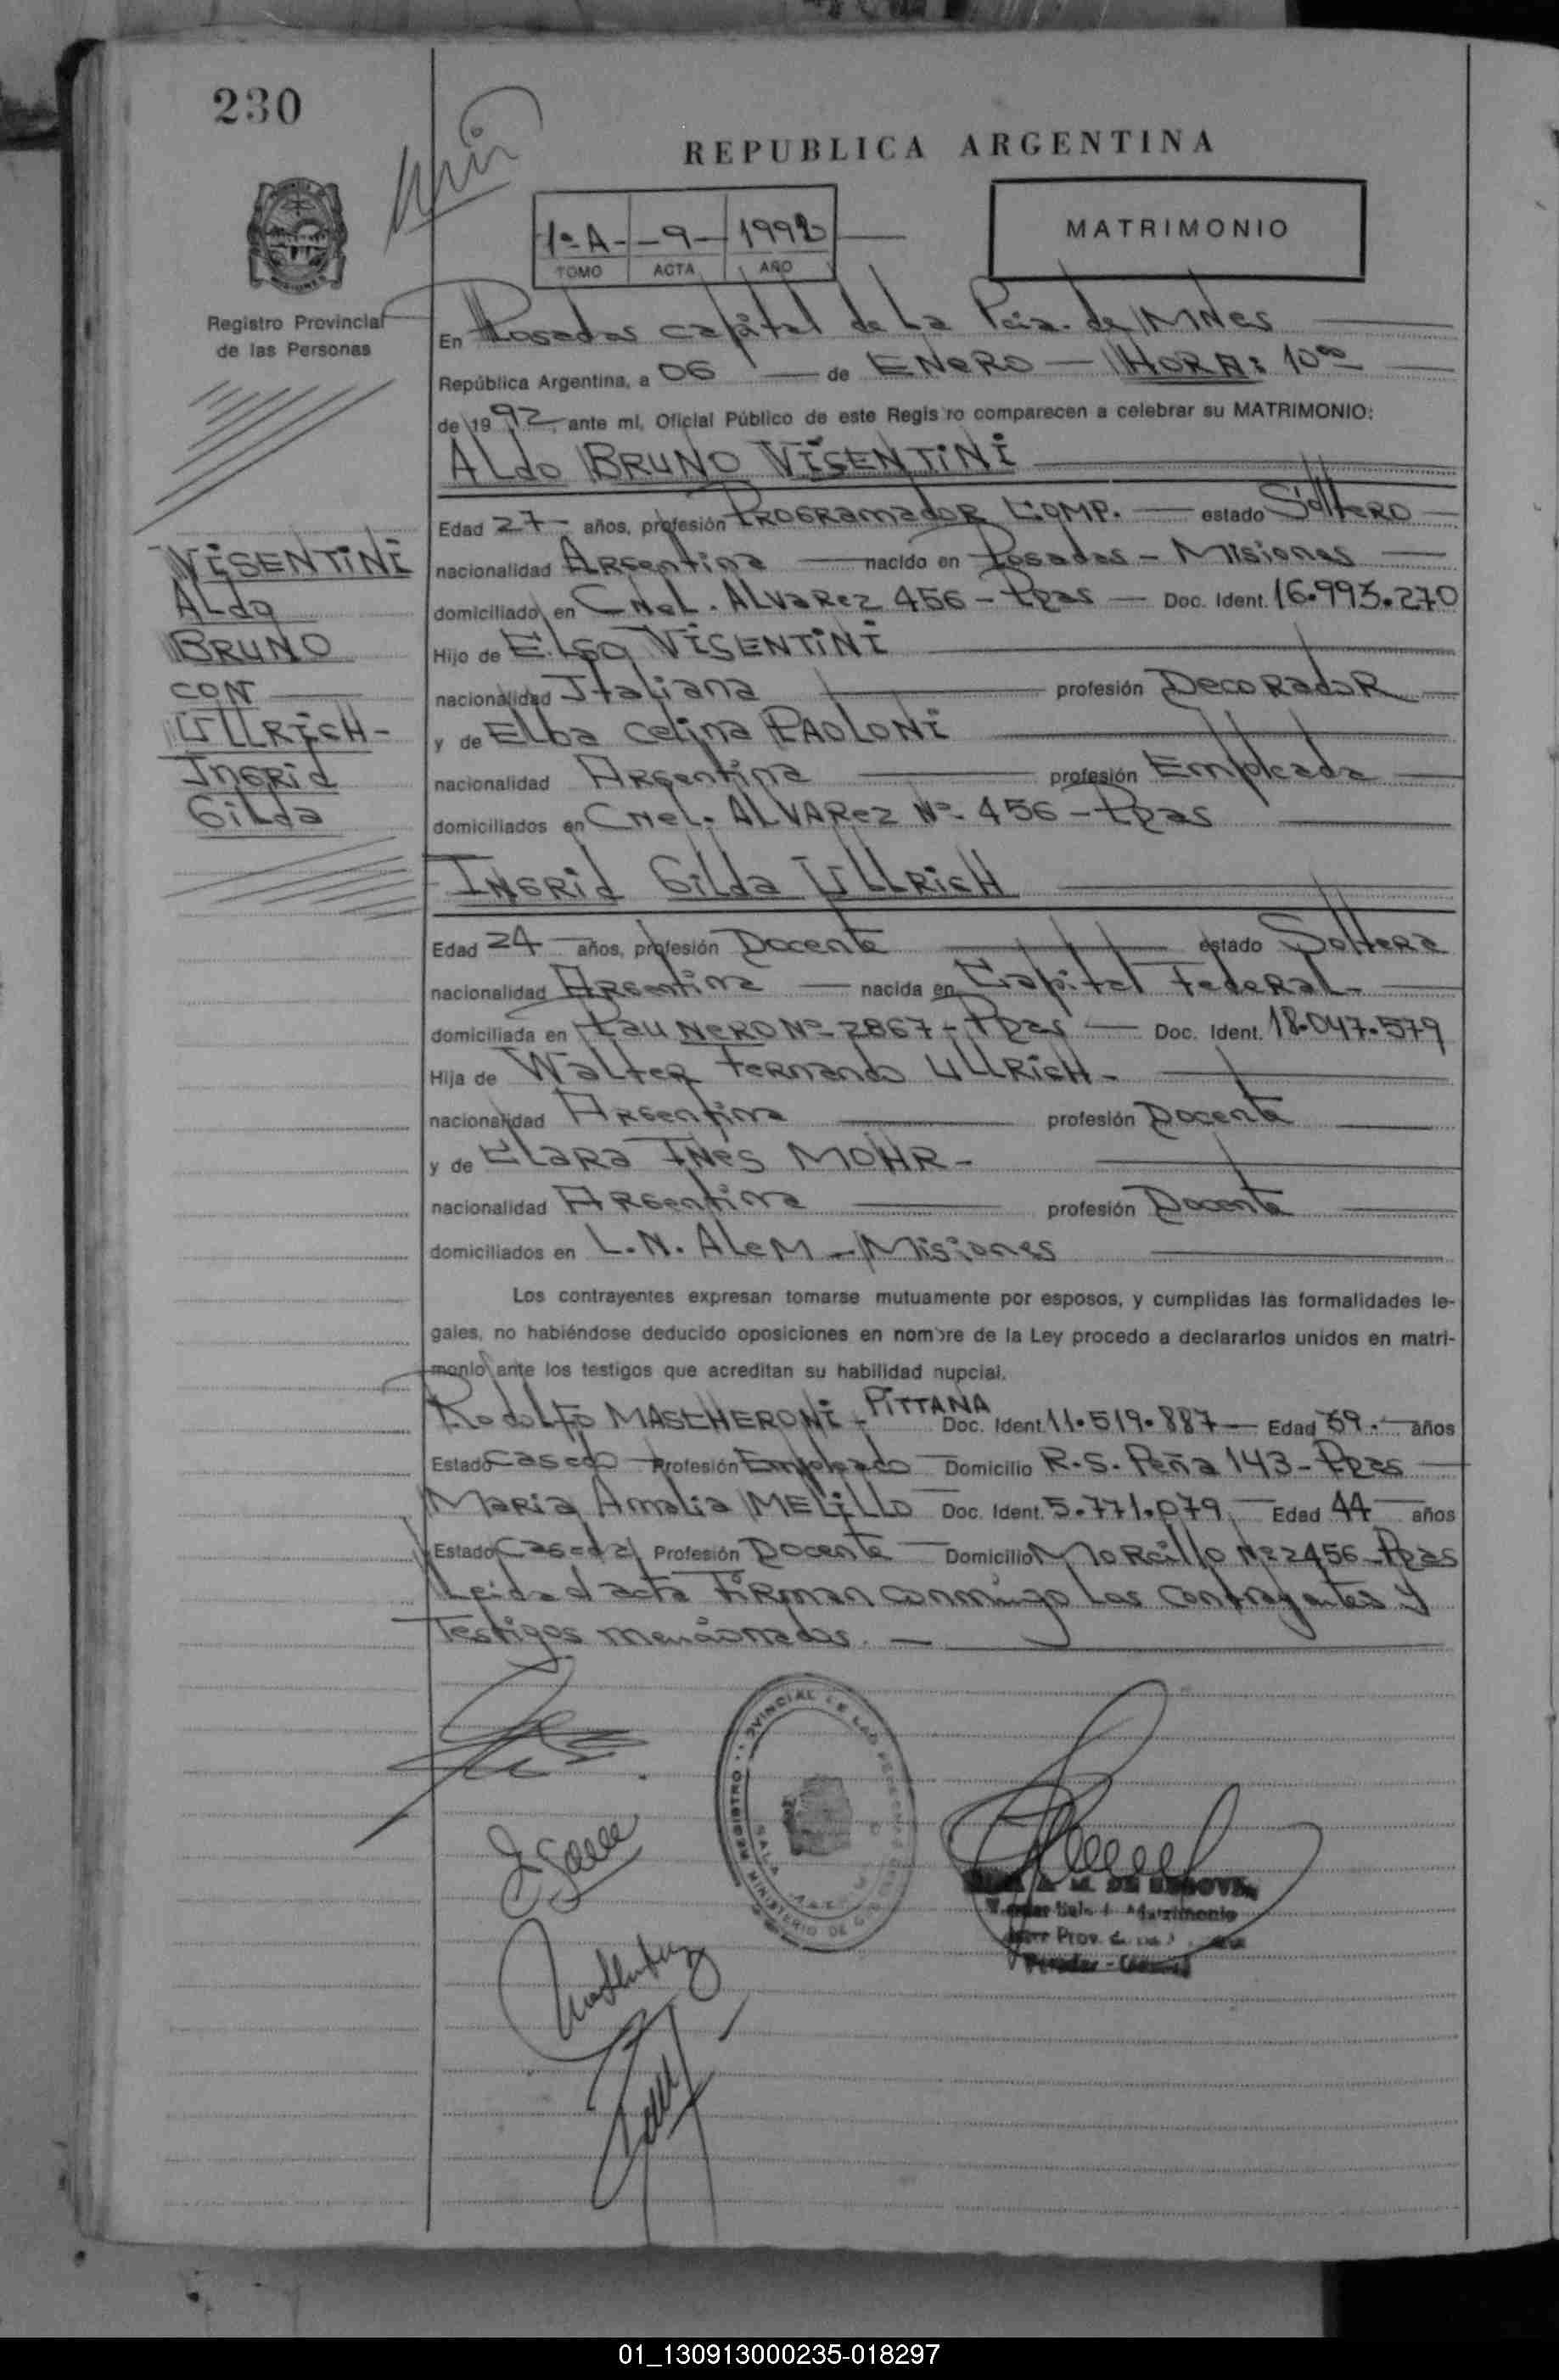 230
REPUBLICA ARGENTINA
1ª A - - 9 - 1992
TOMO ACTA AÑO
MATRIMONIO
Registro Provincial
de las Personas
En Posadas capital de La Pcia. de MNes
República Argentina, a 06 de ENERO - HORA: 10⁰⁰
de 1992, ante mí, Oficial Público de este Registro comparecen a celebrar su MATRIMONIO:
ALdo BRUNO VISENTINI
Edad 27 años, profesión PROGRamadoR COMP. estado SoltERO
nacionalidad ARGentina nacido en Posadas - Misiones
domiciliado en CNeL. ALVaRez 456 - Ppas Doc. Ident. 16.993.270
Hijo de ELso VISENTINI
nacionalidad Italiana profesión DecoRadoR
y de Elba Celina PAOLONI
nacionalidad ARGentina profesión Empleada
domiciliados en CNeL. ALVARez Nº 456 - Ppas
VISENTINI
ALdo
BRUNO
CON
ULLRICH -
INGRid
GiLda
INGRid GiLda ULLRICH
Edad 24 años, profesión Docente estado SolteRa
nacionalidad ARGentina nacida en Capital FedeRaL -
domiciliada en NeRO Nº 2867 - Ppas Doc. Ident. 18.047.579
Hija de WalteR FeRnando ULLRICH -
nacionalidad ARGentina profesión Docente
y de CLaRa INes MOHR -
nacionalidad ARGentina profesión Docente
domiciliados en L.N. ALeM - Misiones
Los contrayentes expresan tomarse mutuamente por esposos, y cumplidas las formalidades le-
gales, no habiéndose deducido oposiciones en nombre de la Ley procedo a declararlos unidos en matri-
monio ante los testigos que acreditan su habilidad nupcial.
RodoLfo MASCHERONI - PITTANA Doc. Ident. 11.519.887 Edad 39 años
Estado Casado Profesión Empleado Domicilio R.S. Peña 143 - Ppas
MaRia Amalia MELILLO Doc. Ident. 5.771.079 Edad 44 años
Estado Casada Profesión Docente Domicilio MoRcillo Nº 2456 - Ppas
Leida el acta FiRman conmigo Los contrayentes y
Testigos mencionados. -
REGISTRO PROVINCIAL DE LAS PERSONAS
MINISTERIO DE GOBIERNO
01_130913000235-018297